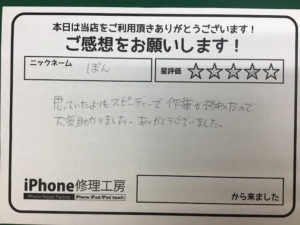 本日は当店をご利用頂きありがとうございます!
ご感想をお願いします!
ニックネーム
ぽん
星評価 ☆☆☆☆☆
思っていたよりもスピーディーで 作業が終わったので
大変助かりました。ありがとうございました。
iPhone修理工房
iPhone Repair Factory iPhone/iPad/iPod touch
から来ました